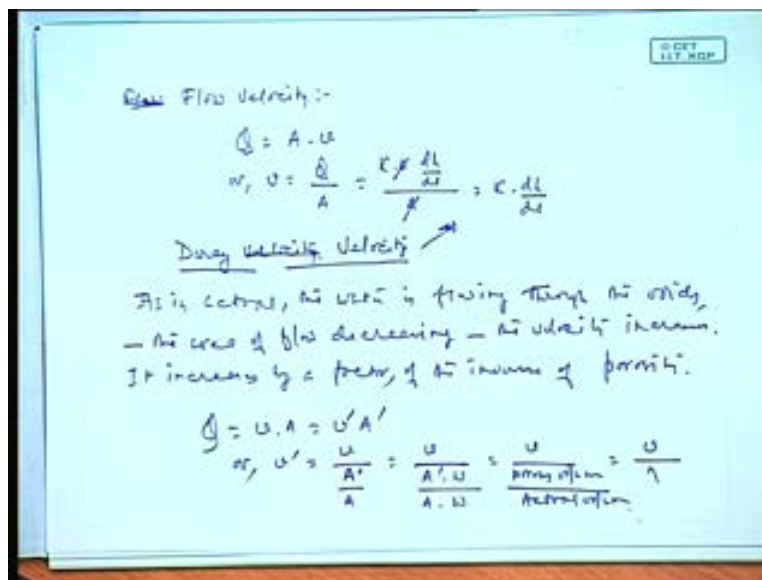 © CET
I.I.T. KGP
Flow Velocity :-
Q = A . v
or, v = Q/A = K A dh/dl / A = K . dh/dl
Darcy Velocity
As in actual, the water is flowing through the voids,
– the area of flow decreasing – the velocity increases.
It increases by a factor, of the inverse of porosity.
Q = v . A = v' A'
or, v' = v / (A'/A) = v / (A' . W / A . W) = v / =  v / η